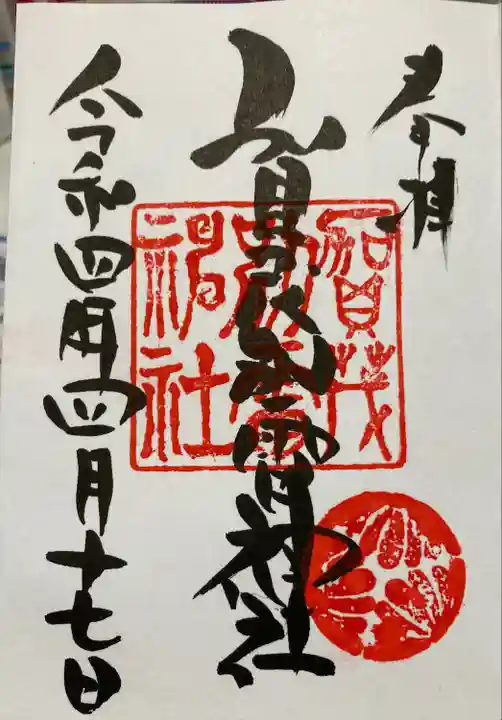 奉拝
賀茂別雷神社
賀茂
別雷
神社
令和四年四月十七日